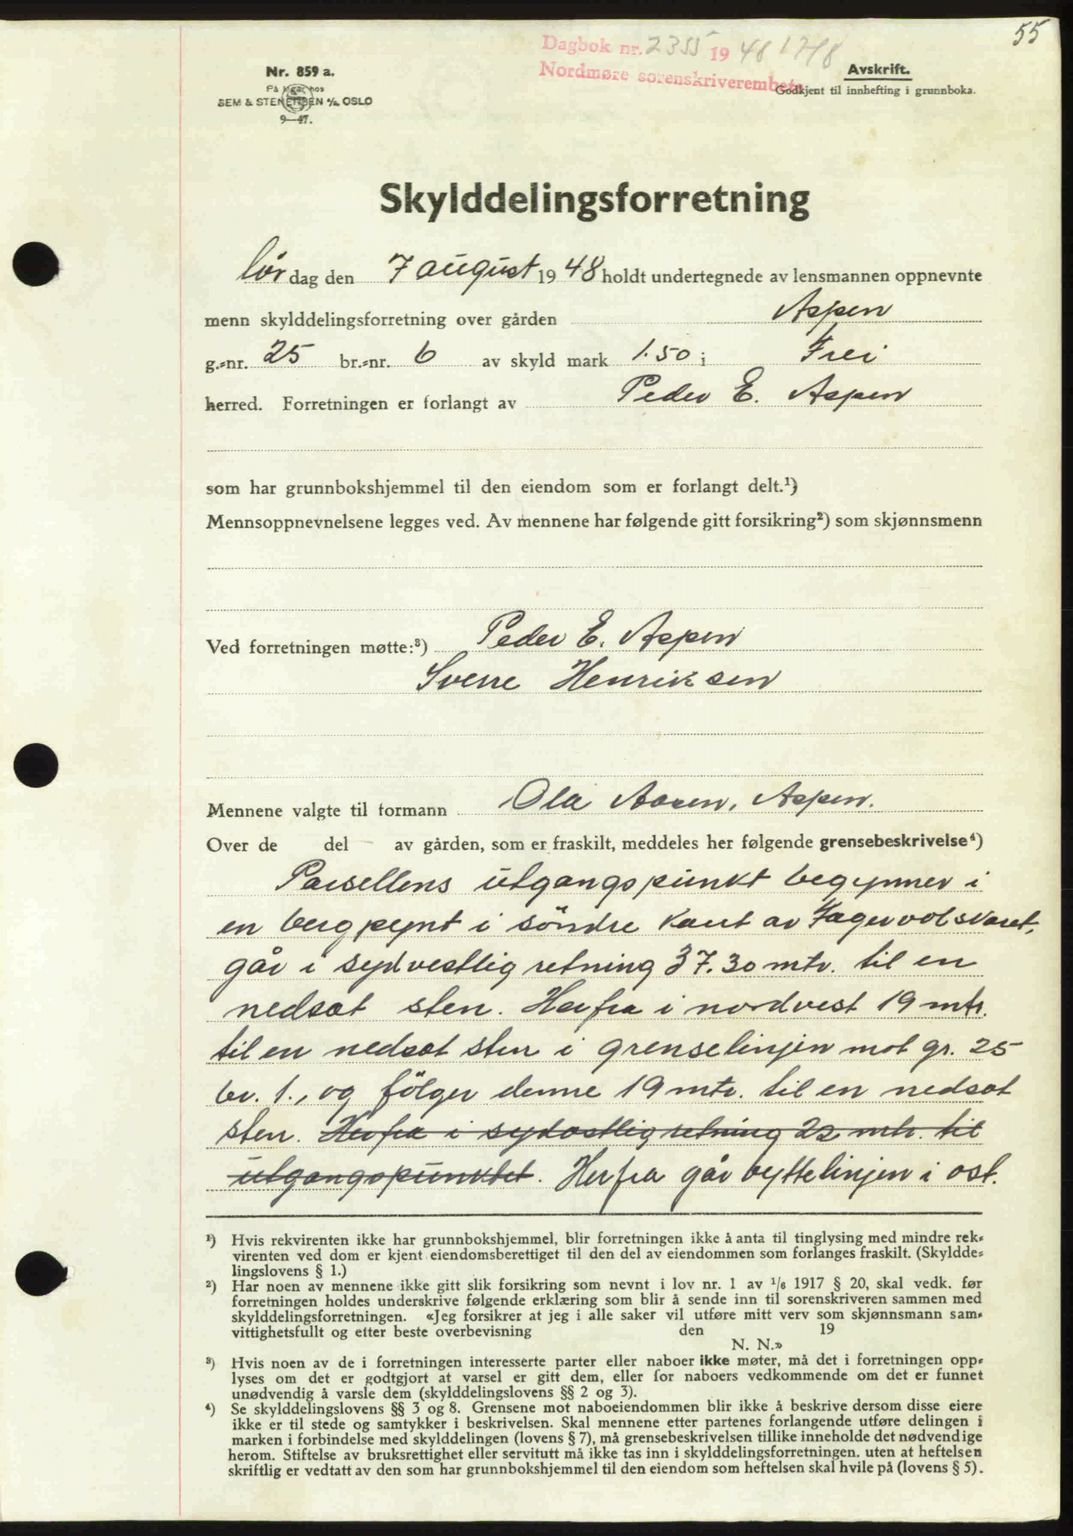 55
Dagbok nr. 2355 1948 17/8
Nordmøre sorenskriverembete
Nr. 859 a.
På lager hos
SEM & STENERSEN A/S OSLO
9—47.
Avskrift.
Godkjent til innhefting i grunnboka.
Skylddelingsforretning
lørdag den 7 august 1948 holdt undertegnede av lensmannen oppnevnte
menn skylddelingsforretning over gården Aspen
g.-nr. 25 br.-nr. 6 av skyld mark 1.50 i Frei
herred. Forretningen er forlangt av Peder E. Aspen
som har grunnbokshjemmel til den eiendom som er forlangt delt.¹)
Mennsoppnevnelsene legges ved. Av mennene har følgende gitt forsikring²) som skjønnsmenn
Ved forretningen møtte:³) Peder E. Aspen
Sverre Henriksen
Mennene valgte til formann Ola Aasen, Aspen.
Over de del av gården, som er fraskilt, meddeles her følgende grensebeskrivelse⁴)
Parsellens utgangspunkt begynner i
en bergpynt i söndre kant av Fagervolsvaret,
går i sydvestlig retning 37.30 mtr. til en
nedsat sten. Herfra i nordvest 19 mtr.
til en nedsat sten i grenselinjen mot gr. 25
br. 1., og fölger denne 19 mtr. til en nedsat
sten. Herfra i sydostlig retning 22 mtr. til
utgangspunktet. Herfra går byttelinjen i ost.
¹) Hvis rekvirenten ikke har grunnbokshjemmel, blir forretningen ikke å anta til tinglysing med mindre rek-
virenten ved dom er kjent eiendomsberettiget til den del av eiendommen som forlanges fraskilt. (Skyldde-
lingslovens § 1.)
²) Har noen av mennene ikke gitt slik forsikring som nevnt i lov nr. 1 av 1/6 1917 § 20, skal vedk. før
forretningen holdes underskrive følgende erklæring som blir å sende inn til sorenskriveren sammen med
skylddelingsforretningen. «Jeg forsikrer at jeg i alle saker vil utføre mitt verv som skjønnsmann sam-
vittighetsfullt og etter beste overbevisning den 19
N. N.»
³) Hvis noen av de i forretningen interesserte parter eller naboer ikke møter, må det i forretningen opp-
lyses om det er godtgjort at varsel er gitt dem, eller for naboers vedkommende om det er funnet
unødvendig å varsle dem (skylddelingslovens §§ 2 og 3).
⁴) Se skylddelingslovens §§ 3 og 8. Grensene mot naboeiendommen blir ikke å beskrive dersom disse eiere
ikke er til stede og samtykker i beskrivelsen. Skal mennene etter partenes forlangende utføre delingen i
marken i forbindelse med skylddelingen (lovens § 7), må grensebeskrivelsen tillike inneholde det nødvendige
herom. Stiftelse av bruksrettighet eller servitutt må ikke tas inn i skylddelingsforretningen, uten at heftelsen
skriftlig er vedtatt av den som har grunnbokshjemmel til den eiendom som heftelsen skal hvile på (lovens § 5).